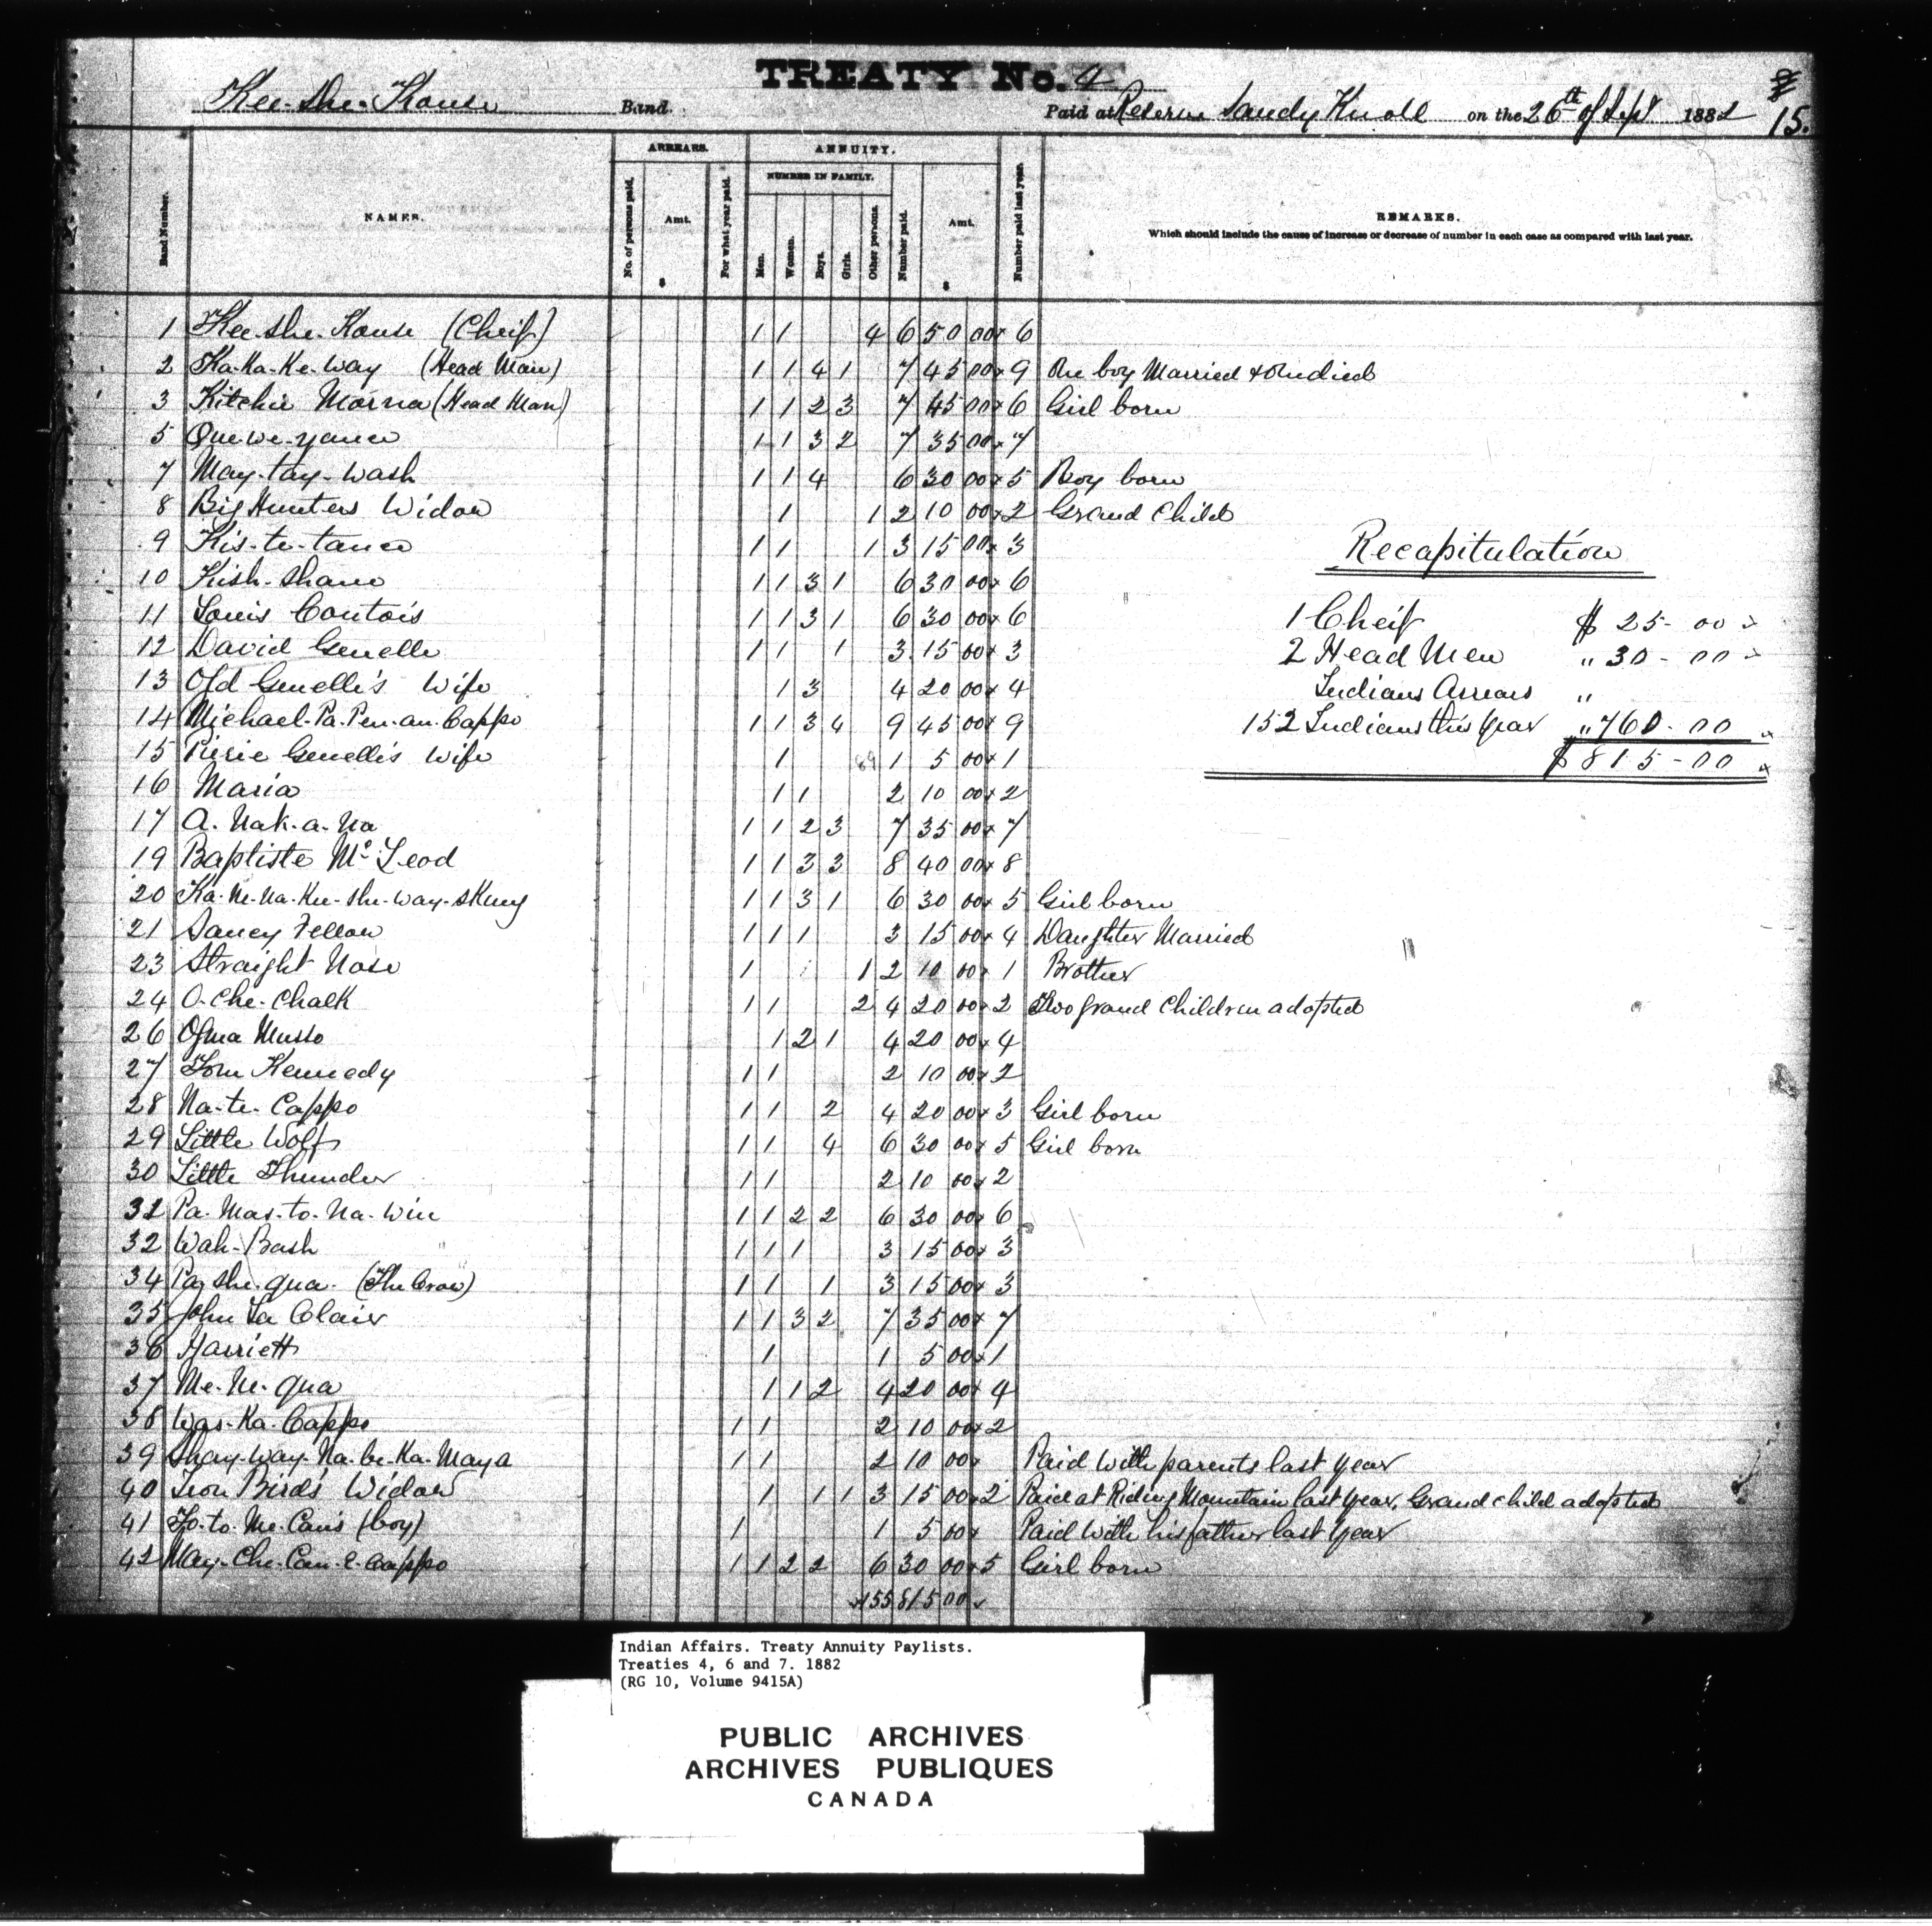 TREATY No. 4
Kee-she-Kouse Band. Paid at Reserve Sandy Knoll on the 26th of Sept 1882
15.
ARREARS. ANNUITY.
NUMBER IN FAMILY.
Band Number. NAMES. No. of persons paid. Amt. $ For what year paid. Men. Women. Boys. Girls. Other persons. Number paid. Amt. $ Number paid last year. REMARKS.
Which should include the cause of increase or decrease of number in each case as compared with last year.
1 Kee-she-Kouse (Cheif) 1 1 4 6 50 00 6
2 Ka-Ka-Ke-way (Head Man) 1 1 4 1 7 45 00 9 One boy Married & One died
3 Kitchie Morna (Head Man) 1 1 2 3 7 45 00 6 Girl born
5 Que-we-yance 1 1 3 2 7 35 00 7
7 May-tay-wash 1 1 4 6 30 00 5 Boy born
8 Big Hunters Widow 1 1 2 10 00 2 Grand Child
9 Kis-te-tance 1 1 1 3 15 00 3
10 Kish-shane 1 1 3 1 6 30 00 6
11 Louis Contois 1 1 3 1 6 30 00 6
12 David Genelle 1 1 1 3 15 00 3
13 Old Genelle's Wife 1 3 4 20 00 4
14 Michael-Pa-Pen-an-Cappo 1 1 3 4 9 45 00 9
15 Pierie Genelle's Wife 1 1 5 00 1
16 Maria 1 1 2 10 00 2
17 A-Nak-a-Na 1 1 2 3 7 35 00 7
19 Baptiste Mc Leod 1 1 3 3 8 40 00 8
20 Ka-Ne-Na-Kee-she-way-skung 1 1 3 1 6 30 00 5 Girl born
21 Saucy Fellow 1 1 1 3 15 00 4 Daughter Married
23 Straight Nose 1 1 2 10 00 1 Brother
24 O-Che-Chalk 1 1 2 4 20 00 2 Two Grand Children adopted
26 Ogma Musso 1 2 1 4 20 00 4
27 Tom Kennedy 1 1 2 10 00 2
28 Na-te-Cappo 1 1 2 4 20 00 3 Girl born
29 Little Wolf 1 1 4 6 30 00 5 Girl born
30 Little Thunder 1 1 2 10 00 2
31 Pa-Mas-to-Na-Win 1 1 2 2 6 30 00 6
32 Wah-Bash 1 1 1 3 15 00 3
34 Pay-she-qua (The Crow) 1 1 1 3 15 00 3
35 John La Clair 1 1 3 2 7 35 00 7
36 Harriett 1 1 5 00 1
37 Me-Ne-qua 1 1 2 4 20 00 4
38 Was-Ka-Cappo 1 1 2 10 00 2
39 Shay-way-Na-be-Ka-Maya 1 1 2 10 00 Paid with parents last year
40 Iron Bird's Widow 1 1 1 3 15 00 2 Paid at Riding Mountain last year, Grand child adopted
41 To-to-Me-Cans (boy) 1 1 5 00 Paid with his father last year
42 May-Che-Can-e-Cappo 1 1 2 2 6 30 00 5 Girl born
155 815 00
Recapitulation
1 Cheif $ 25-00
2 Head Men " 30-00
Indians Arrears "
152 Indians this year " 760-00
$ 815-00
Indian Affairs. Treaty Annuity Paylists.
Treaties 4, 6 and 7. 1882
(RG 10, Volume 9415A)
PUBLIC ARCHIVES
ARCHIVES PUBLIQUES
CANADA